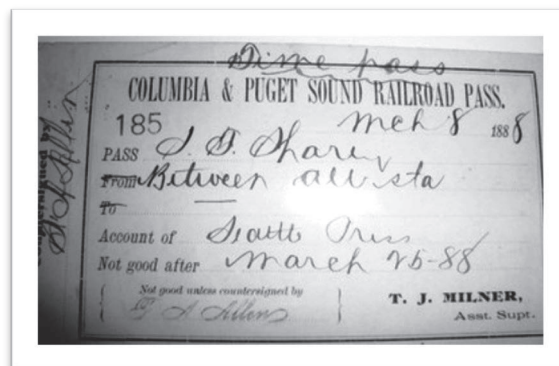 Time pass
COLUMBIA & PUGET SOUND RAILROAD PASS.
185 Mch 8 1888
PASS S. S.
From Between all sta
To
Account of Seattle Press
Not good after March 25-88
Not good unless countersigned by
T. J. MILNER,
Asst. Supt.
Countersigned by